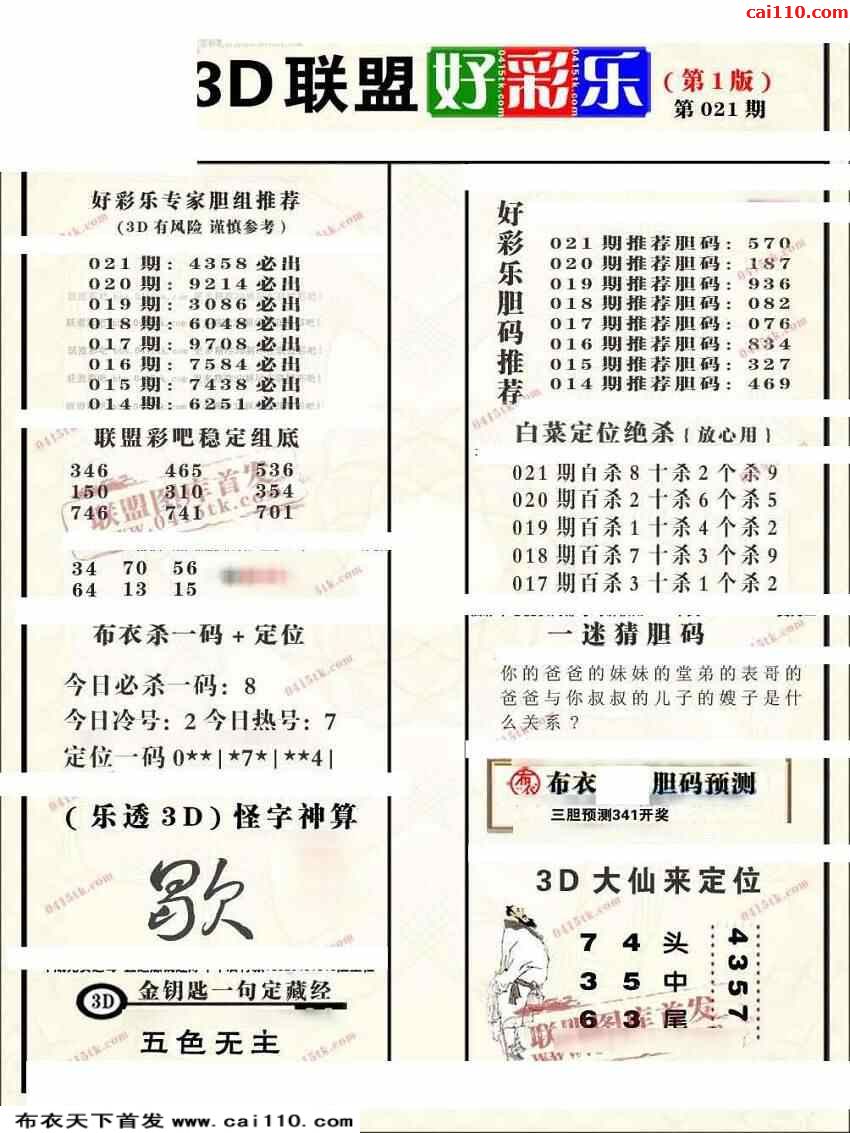 cai110.com
3D联盟 好彩乐 (第1版)
第021期
好彩乐专家胆组推荐
(3D有风险 谨慎参考)
021期: 4358必出
020期: 9214必出
019期: 3086必出
018期: 6048必出
017期: 9708必出
016期: 7584必出
015期: 7438必出
014期: 6251必出
联盟彩吧稳定组底
346 465 536
150 310 354
746 741 701
联盟图库首发
www.0415tk.com
34 70 56
64 13 15
布衣杀一码+定位
今日必杀一码: 8
今日冷号: 2 今日热号: 7
定位一码 0**|*7*|**4|
(乐透3D)怪字神算
歇
3D 金钥匙一句定藏经
五色无主
好彩乐胆码推荐
021期推荐胆码: 570
020期推荐胆码: 187
019期推荐胆码: 936
018期推荐胆码: 082
017期推荐胆码: 076
016期推荐胆码: 834
015期推荐胆码: 327
014期推荐胆码: 469
白菜定位绝杀{放心用}
021期百杀8十杀2个杀9
020期百杀2十杀6个杀5
019期百杀1十杀4个杀2
018期百杀7十杀3个杀9
017期百杀3十杀1个杀2
一迷猜胆码
你的爸爸的妹妹的堂弟的表哥的
爸爸与你叔叔的儿子的嫂子是什
么关系?
布衣 布衣 胆码预测
三胆预测341开奖
3D大仙来定位
7 4 头
3 5 中
6 3 尾
4357
联盟图库首发
0415tk.com
布衣天下首发 www.cai110.com